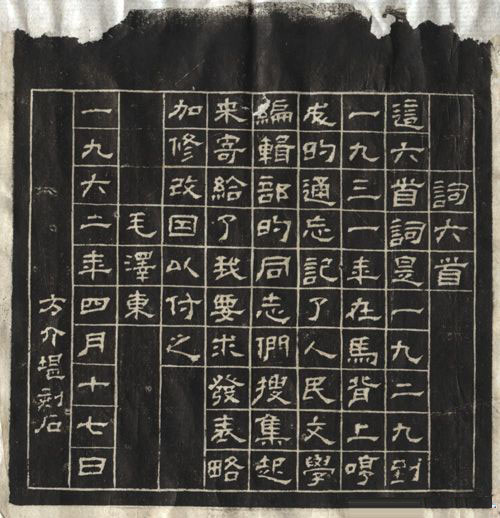 詞六首
這六首詞是一九二九到
一九三一年在馬背上哼
成的通忘記了人民文學
編輯部的同志們搜集起
来寄給了我要求發表略
加修改因以付之
毛澤東
一九六二年四月十七日
方介堪刻石